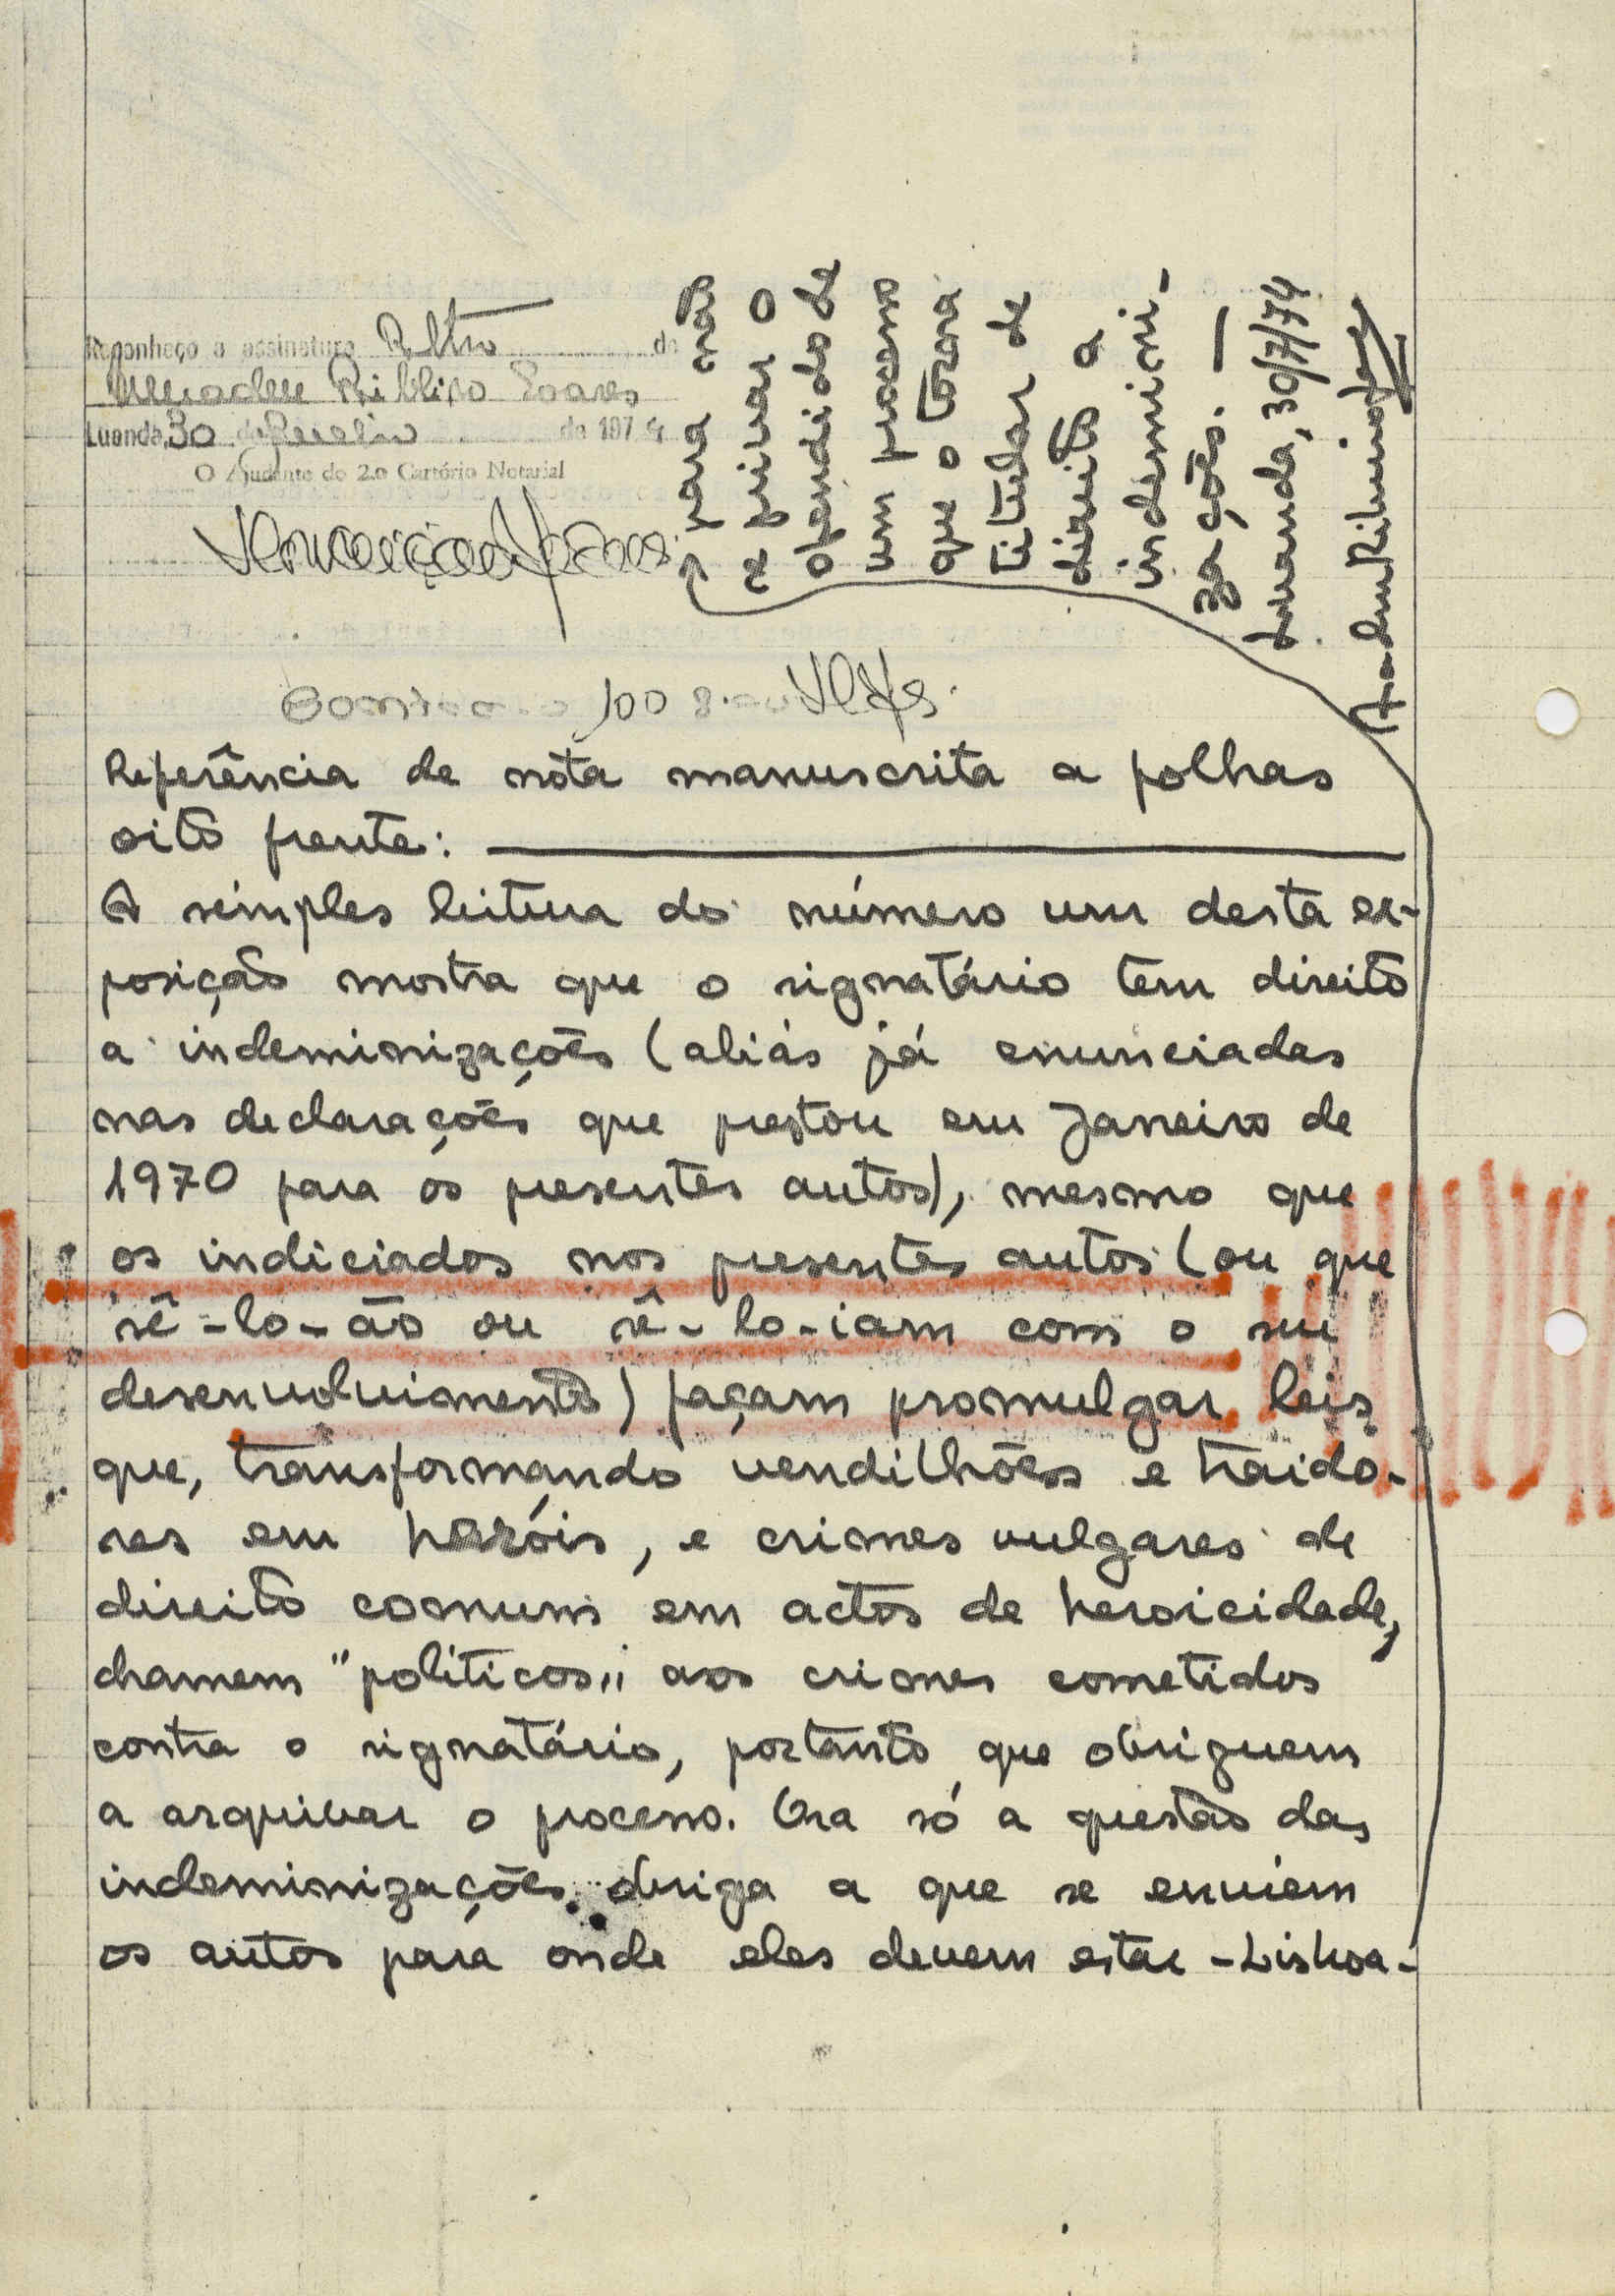 Reconheço a assinatura Retro de
Amadeu Ribeiro Soares
Luanda, 30 de Julho de 1974
O Ajudante do 2.o Cartório Notarial
100
Referência de nota manuscrita a folhas
oito frente:
A simples leitura do número um desta ex-
posição mostra que o signatário tem direito
a indeminizações (aliás já enunciadas
nas declarações que prestou em Janeiro de
1970 para os presentes autos), mesmo que
os indiciados nos presentes autos (ou que
sê-lo-ão ou sê-lo-iam com o seu
desenvolvimento) façam promulgar leis
que, transformando vendilhões e traido-
res em heróis, e crimes vulgares de
direito comum em actos de heroicidade,
chamem "politicos" aos crimes cometidos
contra o signatário, portanto que obriguem
a arquivar o processo. Ora só a questão das
indeminizações obriga a que se enviem
os autos para onde eles devem estar - Lisboa -
para não
se privar o
ofendido de
um processo
que o torna
titular de
direito a
indemini-
zações. —
Luanda, 30/7/74